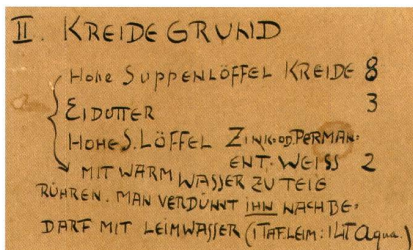 II. KREIDEGRUND
Hohe SUPPENLÖFFEL KREIDE 8
EIDOTTER 3
HOHE S. LÖFFEL ZINK-OD. PERMAN-
ENT. WEISS 2
MIT WARM WASSER ZU TEIG
RÜHREN. MAN VERDÜNNT IHN NACH BE-
DARF MIT LEIMWASSER (1 TAF. LEIM: 1 LIT Aqua.)